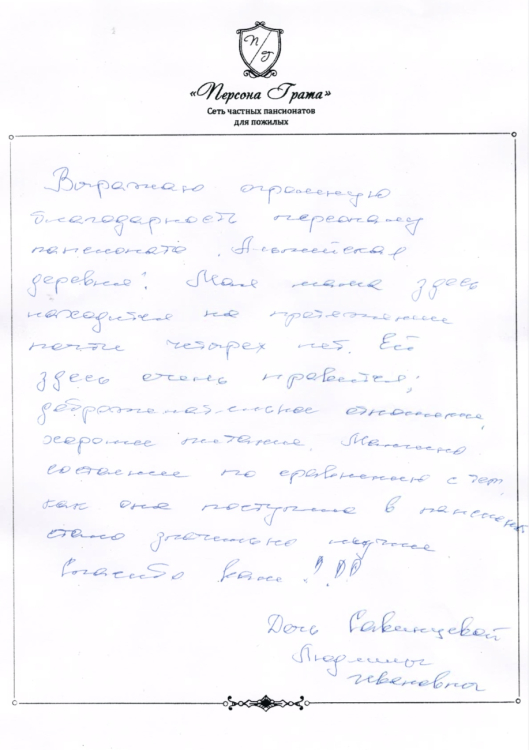 П/Г
«Персона Грата»
Сеть частных пансионатов
для пожилых
Выражаю огромную
благодарность персоналу
пансионата „Альпийская
деревня“. Моя мама здесь
находится на протяжении
почти четырех лет. Ей
здесь очень нравится;
доброжелательное отношение,
хорошее питание. Мамино
состояние по сравнению с тем,
как она поступила в пансионат
стало значительно лучше
Спасибо вам!!!!
Дочь Савенцевой
Людмилы
Ивановны